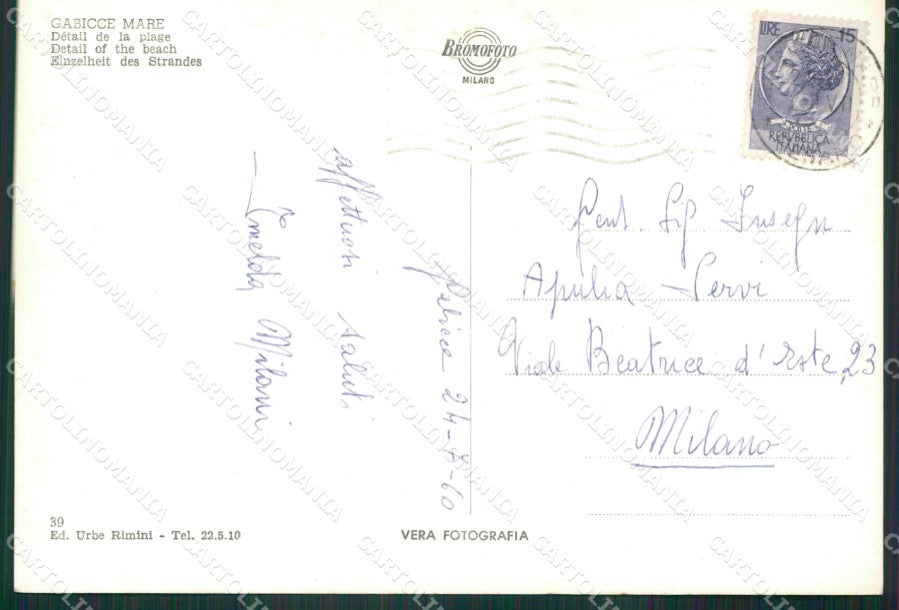 GABICCE MARE
Détail de la plage
Detail of the beach
Einzelheit des Strandes
BROMOFOTO
MILANO
LIRE 15
REPVBBLICA
ITALIANA
Gabicce 24-8-60
affettuosi saluti
Imelda Milani
Gent. Sig Insegn
Apulia Servi
Viale Beatrice d'Este, 23
Milano
39
Ed. Urbe Rimini - Tel. 22.5.10
VERA FOTOGRAFIA
CARTOLINOMANIA